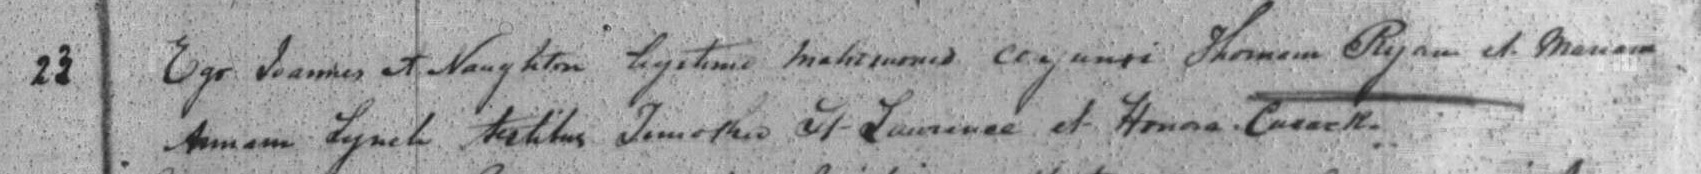 23 Ego Joannes A Naughton legitimo matrimonio conjunxi Thomam Ryan et Mariam
Annam Lynch testibus Timotheo St Lawrence et Honora Cusack.